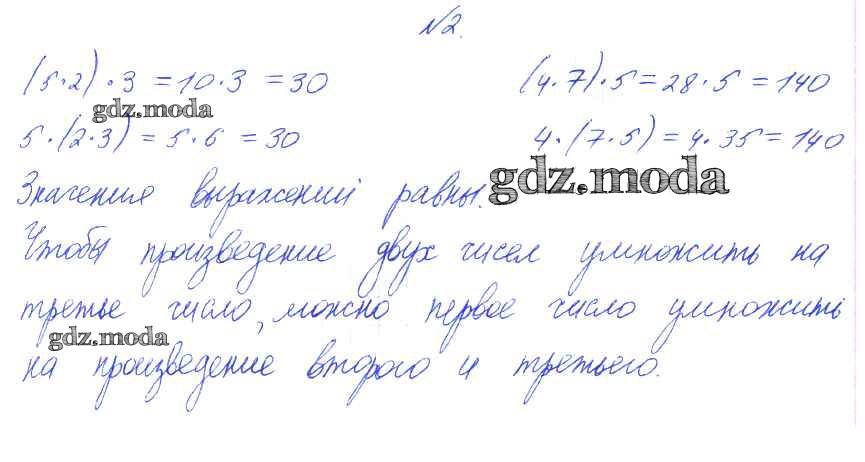 №2.
(5·2)·3 = 10·3 = 30 (4·7)·5 = 28·5 = 140
gdz.moda
5·(2·3) = 5·6 = 30 4·(7·5) = 4·35 = 140
Значения выражений равны. gdz.moda
Чтобы произведение двух чисел умножить на
третье число, можно первое число умножить
gdz.moda
на произведение второго и третьего.